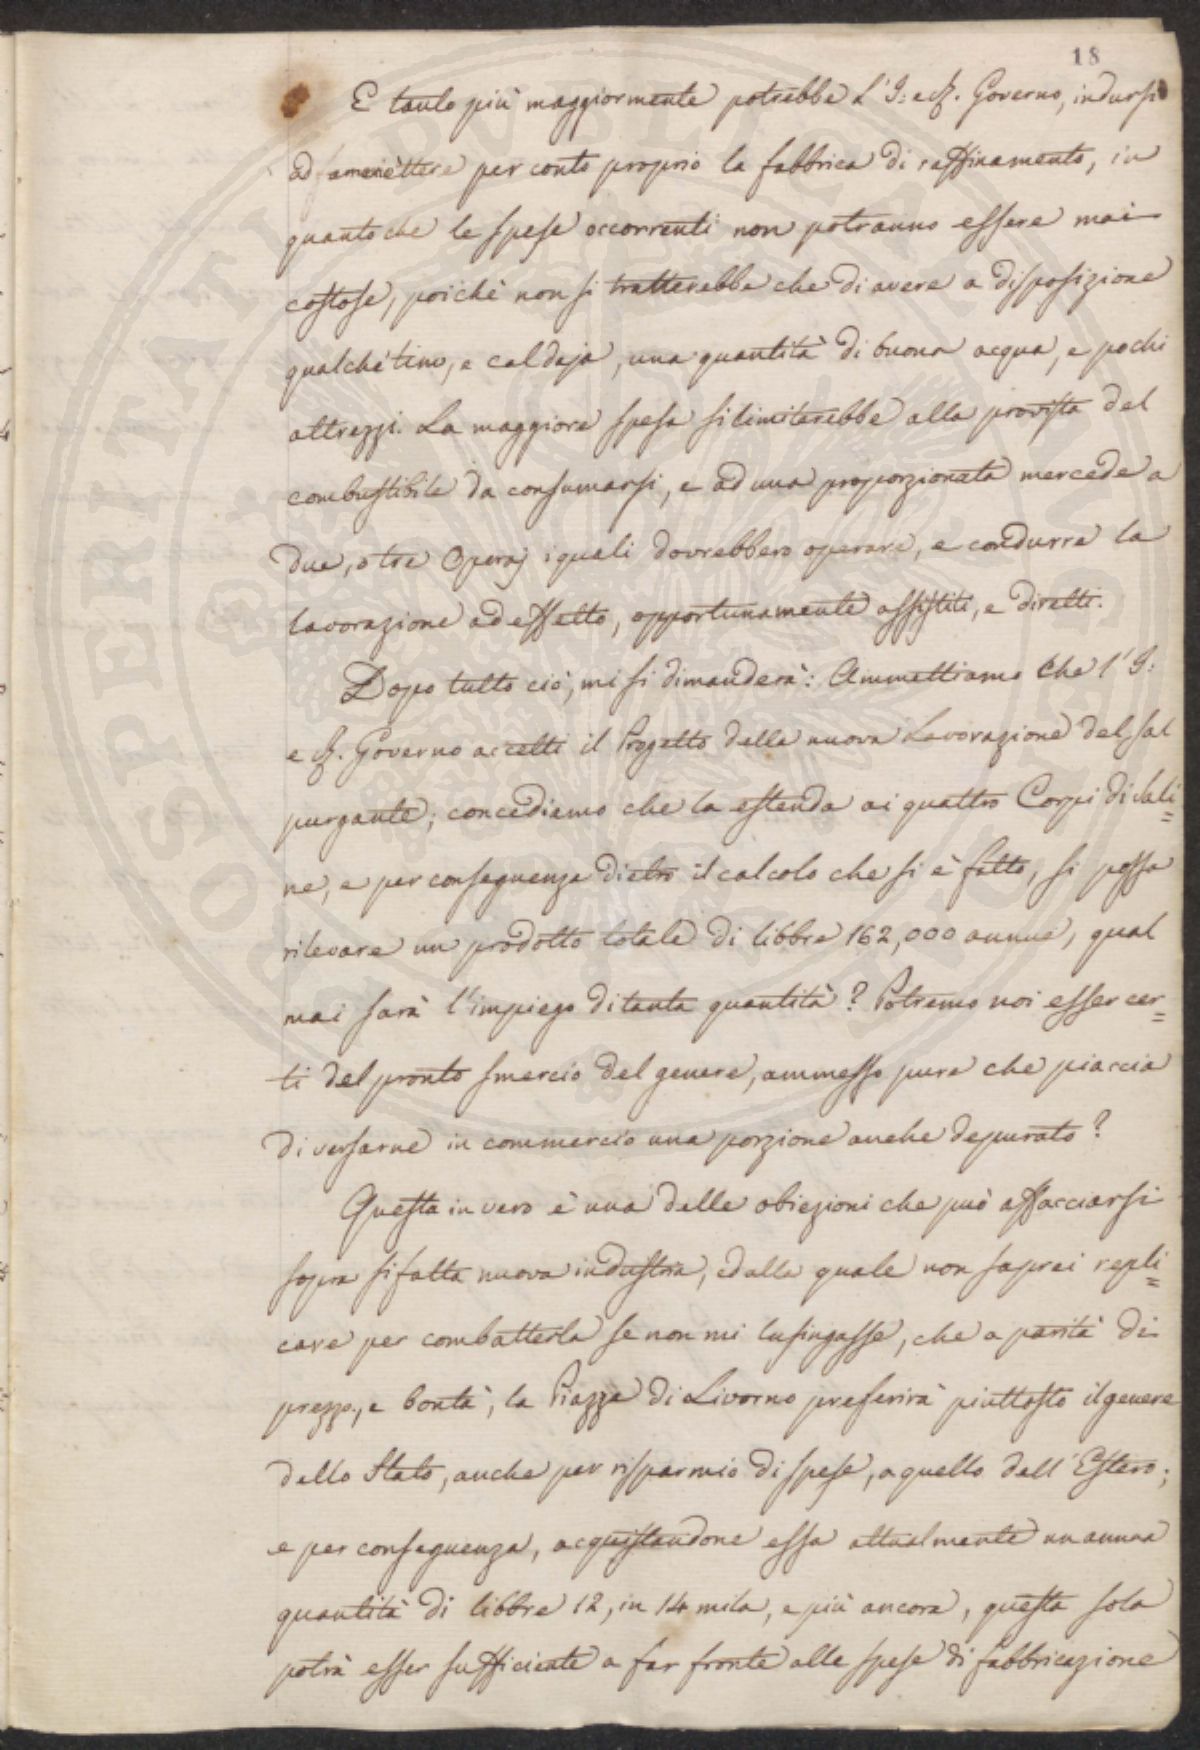 18
E tanto più maggiormente potrebbe L'I: e R. Governo, indursi
ad ammettere per conto proprio la fabbrica di raffinamento, in
quanto che le spese occorrenti non potranno essere mai
costose, poichè non si tratterebbe che di avere a disposizione
qualche tino, e caldaja, una quantità di buona acqua, e pochi
attrezzi. La maggiore spesa si limiterebbe alla provista del
combustibile da consumarsi, e ad una proporzionata mercede a
due, o tre Operaj i quali dovrebbero operare, e condurre la
lavorazione ad effetto, opportunamente assistiti, e diretti.
Dopo tutto ciò, mi si dimanderà: Ammettiamo che l'I:
e R. Governo accetti il Progetto della nuova Lavorazione del sal
purgante; concediamo che la estenda ai quattro Corpi di Sali=
ne, e per conseguenza dietro il calcolo che si è fatto, si possa
rilevare un prodotto totale di libbre 162,000 annue, qual
mai sarà l'impiego di tanta quantità? Potremo noi esser cer=
ti del pronto smercio del genere, ammesso pure che piaccia
di versarne in commercio una porzione anche depurato?
Questa in vero è una delle obiezioni che può affacciarsi
sopra sifatta nuova industria, ed alla quale non saprei repli=
care per combatterla se non mi lusingasse, che a parità di
prezzo, e bontà, la Piazza di Livorno preferirà piuttosto il genere
dello Stato, anche per risparmio di spese, a quello dell'Estero;
e per conseguenza, acquistandone essa attualmente un annua
quantità di libbre 12, in 14 mila, e più ancora, questa sola
potrà esser sufficiente a far fronte alle spese di fabbricazione
PROSPERITATI PUBLICAE